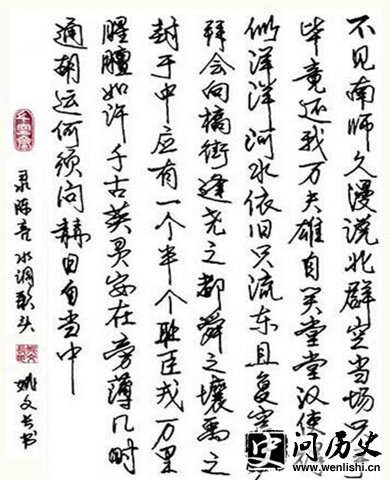 不见南师久漫说北群空当场只手
毕竟还我万夫雄自笑堂堂汉使得
似洋洋河水依旧只流东且复穹
拜会向槁街逢尧之都舜之壤禹之
封于中应有一个半个耻臣戎万里
腥膻如许千古英灵安在旁薄几时
通胡运何须问赫日自当中
录陈亮水调歌头
姚文长书
问历史
www.wenlishi.cn